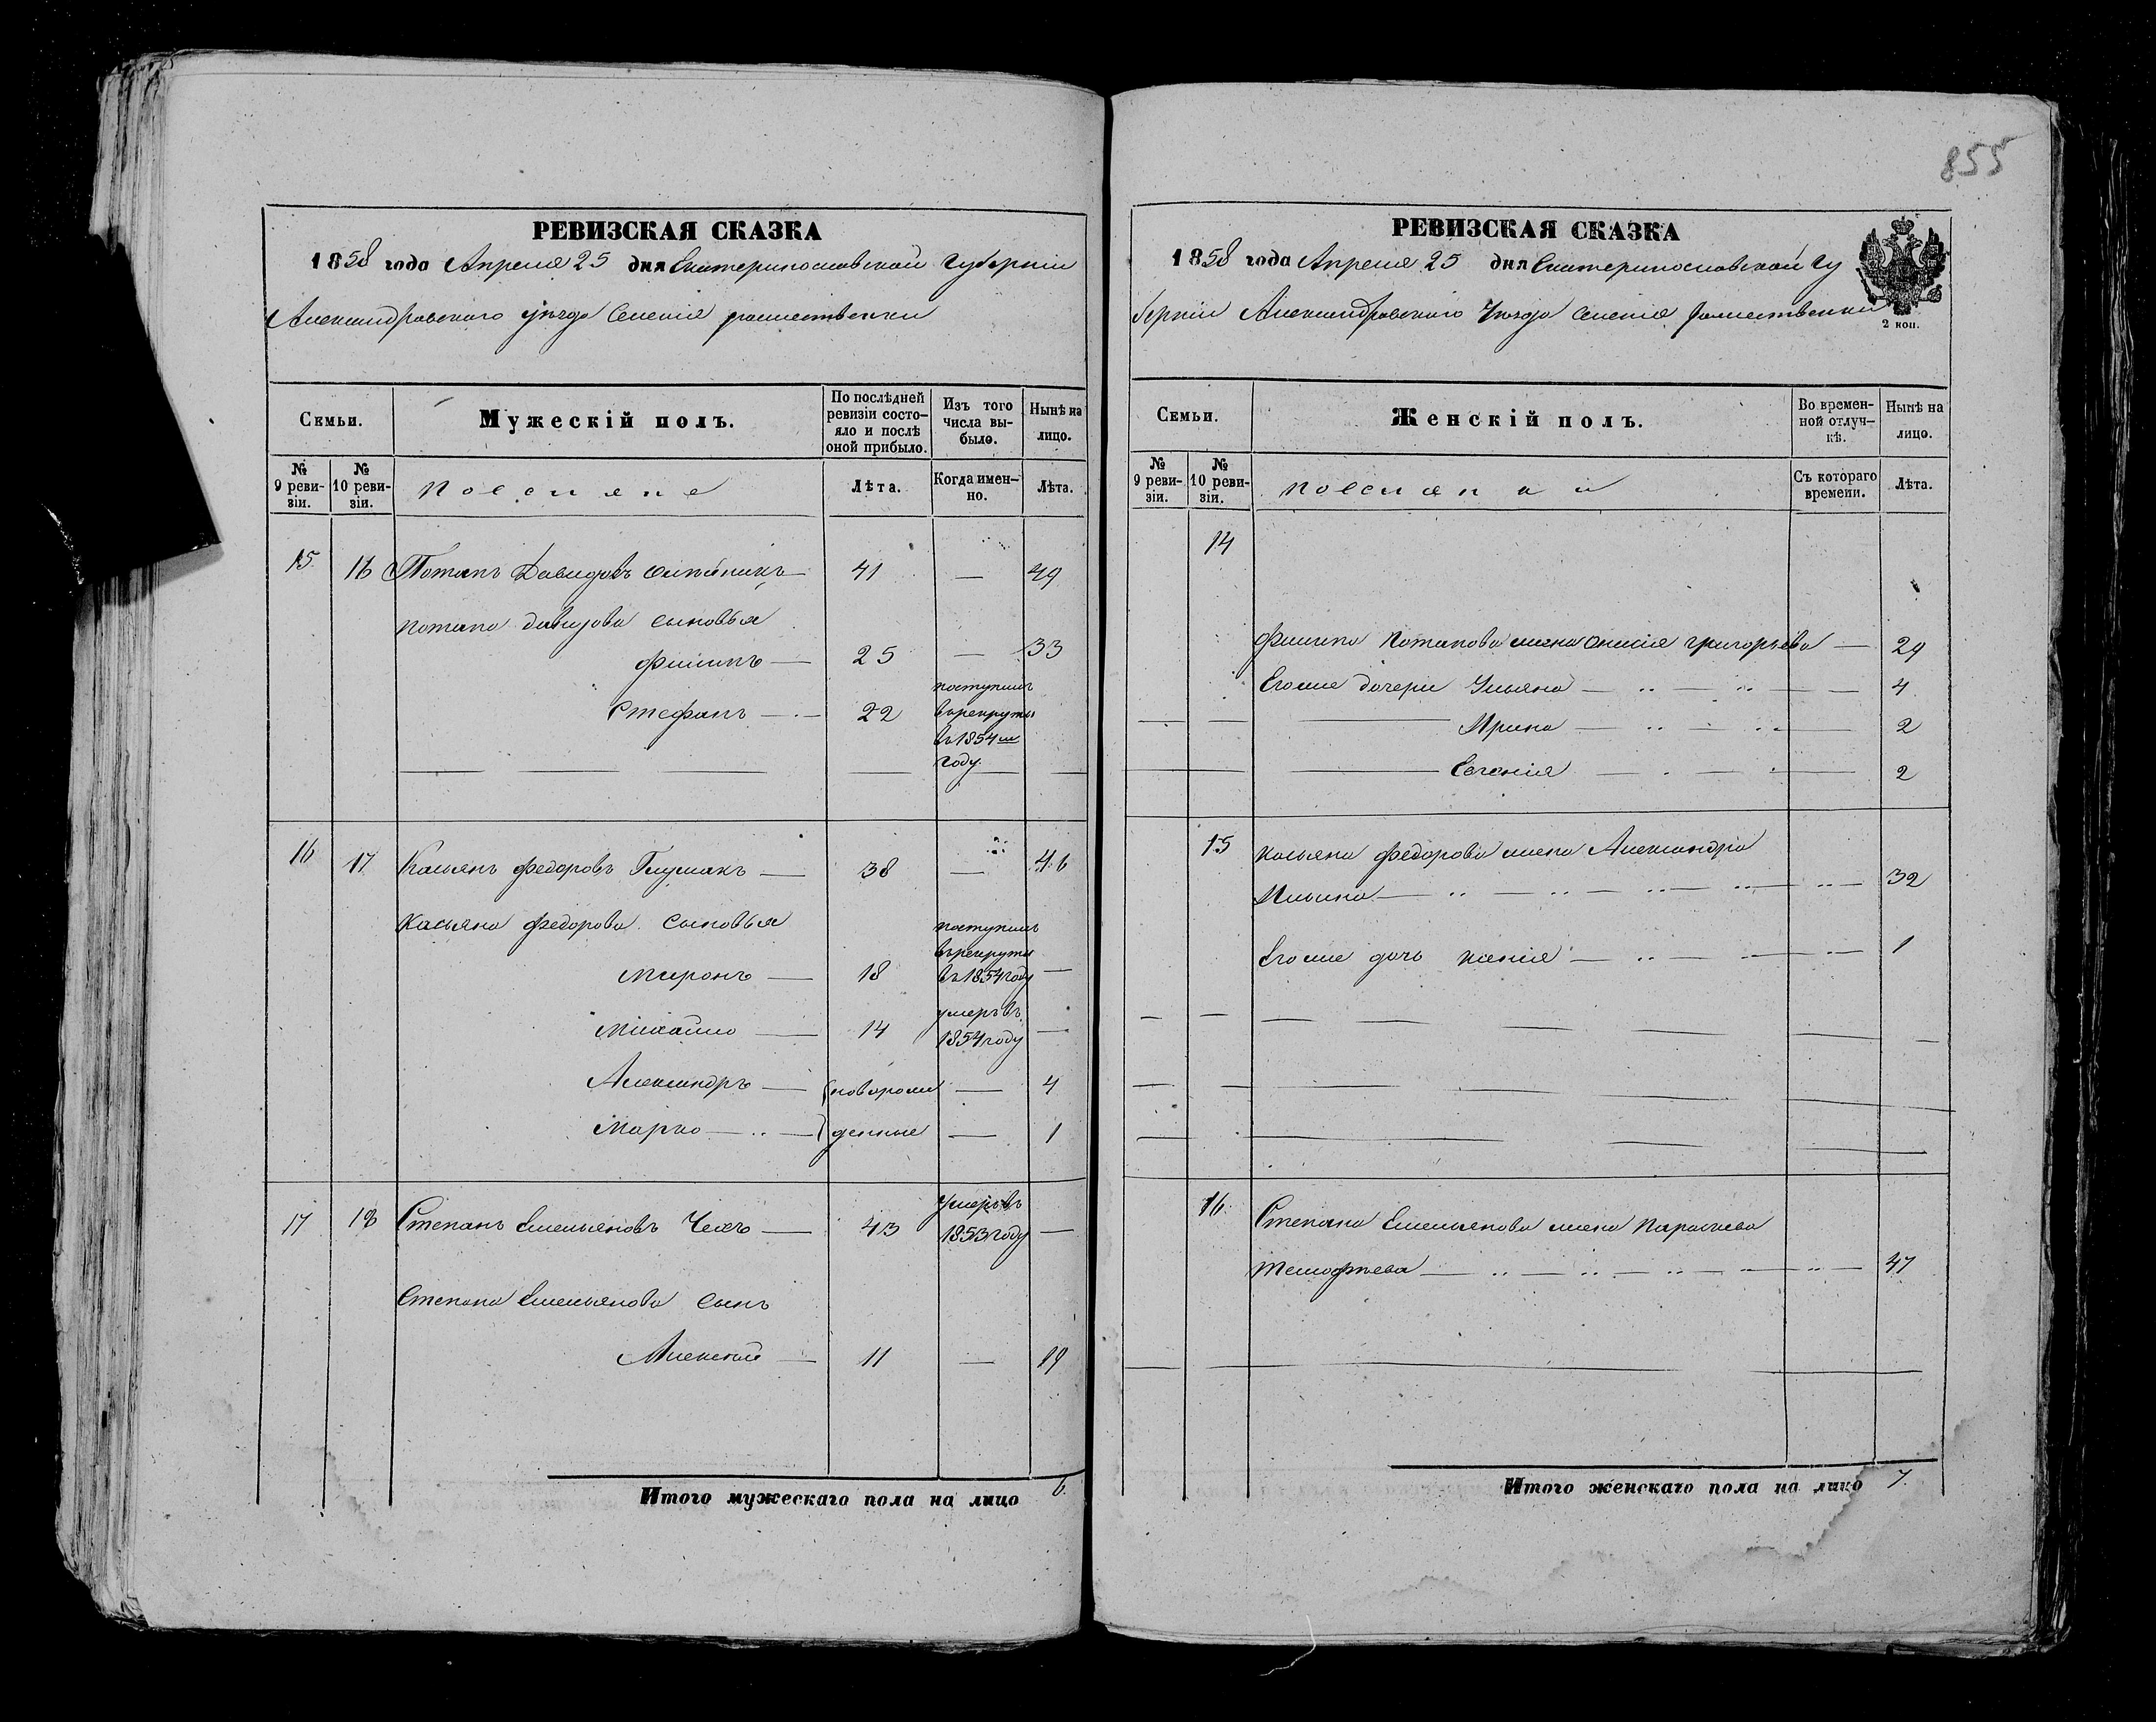 855
РЕВИЗСКАЯ СКАЗКА
1858 года Апреля 25 дня Екатеринославской Губерніи
Александровского уезда Селенія
Семьи.
Мужескій полъ.
По послѣдней ревизіи состо-
яло и послѣ
оной прибыло.
Изъ того
числа вы-
было.
Нынѣ на
лицо.
№
9 реви-
зіи.
№
10 реви-
зіи.
Поселяне
Лѣта.
Когда имен-
но.
Лѣта.
15 16 Потапъ Давидовъ — 41 — 49
Потапа Давидова сыновья
Филипъ — 25 — 33
Стефанъ — 22 поступилъ
в рекруты
въ 1854 м
году.
16 17 Касьянъ Федоровъ Глушакъ — 38 — 46
Касьяна Федорова сыновья
Миронъ — 18 поступилъ
в рекруты
въ 1854 году —
Михайло — 14 умеръ въ
1854 году —
Александръ — новорож — 4
Марко — денные — 1
17 18 Степанъ Емельяновъ Чехъ — 43 умеръ въ
1853 году —
Степана Емельянова сынъ
Алексей — 11 — 19
Итого мужескаго пола на лицо 6.
РЕВИЗСКАЯ СКАЗКА
1858 года Апреля 25 дня Екатеринославской Гу
берніи Александровского Уезда Селенія
2 коп.
Семьи.
Женскій полъ.
Во времен-
ной отлуч-
кѣ.
Нынѣ на
лицо.
№
9 реви-
зіи.
№
10 реви-
зіи.
Поселянки
Съ котораго
времени.
Лѣта.
14
Филипа Потапова жена Онисія Григорьева — 29
Его же дочери Ульяна — 4
Ирина — 2
Евгенія — 2
15 Касьяна Федорова жена Александра
Ильина — 32
Его же дочь Ксенія — 1
16 Степана Емельянова жена Параскева
Тимофеева — 47
Итого женскаго пола на лицо 7.